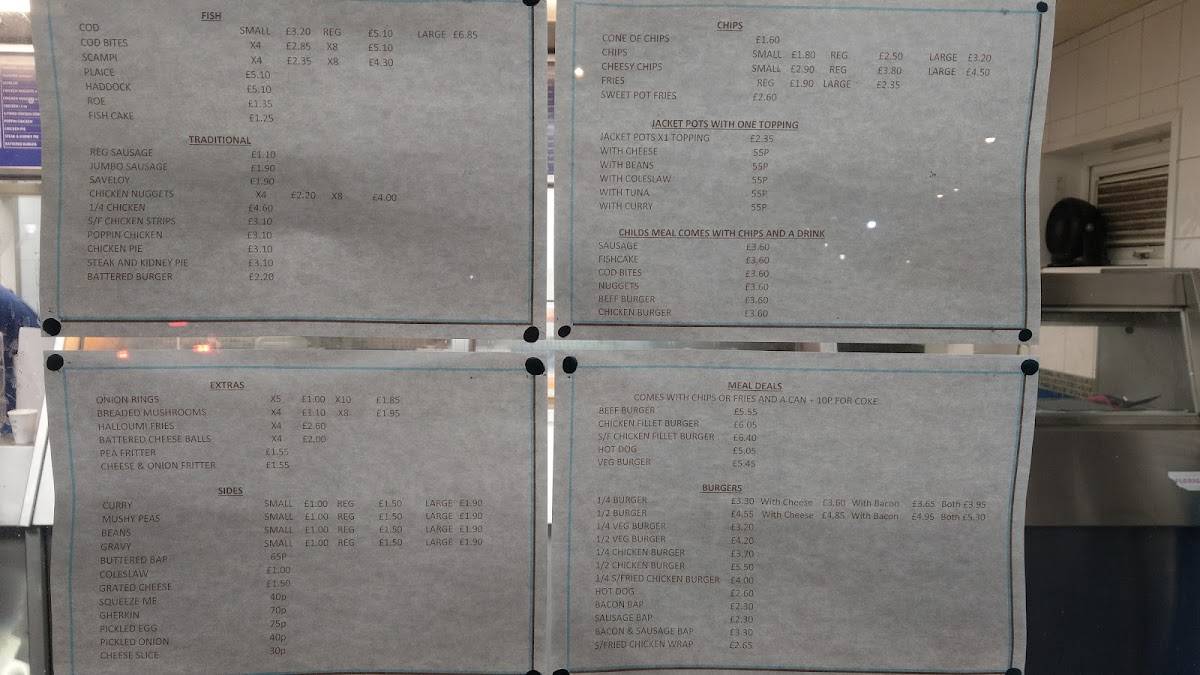 FISH
COD SMALL £3.20 REG £5.10 LARGE £6.85
COD BITES X4 £2.85 X8 £5.10
SCAMPI X4 £2.35 X8 £4.30
PLAICE £5.10
HADDOCK £5.10
ROE £1.35
FISH CAKE £1.25
TRADITIONAL
REG SAUSAGE £1.10
JUMBO SAUSAGE £1.90
SAVELOY £1.90
CHICKEN NUGGETS X4 £2.20 X8 £4.00
1/4 CHICKEN £4.60
S/F CHICKEN STRIPS £3.10
POPPIN CHICKEN £3.10
CHICKEN PIE £3.10
STEAK AND KIDNEY PIE £3.10
BATTERED BURGER £2.20
CHIPS
CONE OF CHIPS £1.60
CHIPS SMALL £1.80 REG £2.50 LARGE £3.20
CHEESY CHIPS SMALL £2.90 REG £3.80 LARGE £4.50
FRIES REG £1.90 LARGE £2.35
SWEET POT FRIES £2.60
JACKET POTS WITH ONE TOPPING
JACKET POTS X1 TOPPING £2.35
WITH CHEESE 55P
WITH BEANS 55P
WITH COLESLAW 55P
WITH TUNA 55P
WITH CURRY 55P
CHILDS MEAL COMES WITH CHIPS AND A DRINK
SAUSAGE £3.60
FISHCAKE £3.60
COD BITES £3.60
NUGGETS £3.60
BEEF BURGER £3.60
CHICKEN BURGER £3.60
EXTRAS
ONION RINGS X5 £1.00 X10 £1.85
BREADED MUSHROOMS X4 £1.10 X8 £1.95
HALLOUMI FRIES X4 £2.60
BATTERED CHEESE BALLS X4 £2.00
PEA FRITTER £1.55
CHEESE & ONION FRITTER £1.55
SIDES
CURRY SMALL £1.00 REG £1.50 LARGE £1.90
MUSHY PEAS SMALL £1.00 REG £1.50 LARGE £1.90
BEANS SMALL £1.00 REG £1.50 LARGE £1.90
GRAVY SMALL £1.00 REG £1.50 LARGE £1.90
BUTTERED BAP 65P
COLESLAW £1.00
GRATED CHEESE £1.50
SQUEEZE ME 40p
GHERKIN 70p
PICKLED EGG 75p
PICKLED ONION 40p
CHEESE SLICE 30p
MEAL DEALS
COMES WITH CHIPS OR FRIES AND A CAN + 10P FOR COKE
BEEF BURGER £5.55
CHICKEN FILLET BURGER £6.05
S/F CHICKEN FILLET BURGER £6.40
HOT DOG £5.05
VEG BURGER £5.45
BURGERS
1/4 BURGER £3.30 With Cheese £3.60 With Bacon £3.65 Both £3.95
1/2 BURGER £4.55 With Cheese £4.85 With Bacon £4.95 Both £5.30
1/4 VEG BURGER £3.20
1/2 VEG BURGER £4.20
1/4 CHICKEN BURGER £3.70
1/2 CHICKEN BURGER £5.50
1/4 S/FRIED CHICKEN BURGER £4.00
HOT DOG £2.60
BACON BAP £2.30
SAUSAGE BAP £2.30
BACON & SAUSAGE BAP £3.30
S/FRIED CHICKEN WRAP £2.65